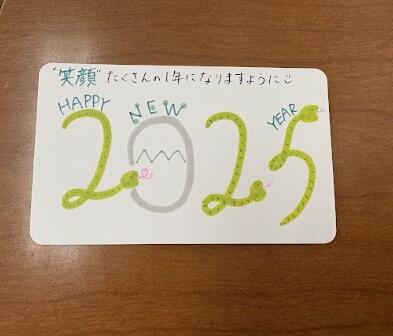 "笑顔"たくさんの1年になりますように☺
HAPPY NEW YEAR
2025